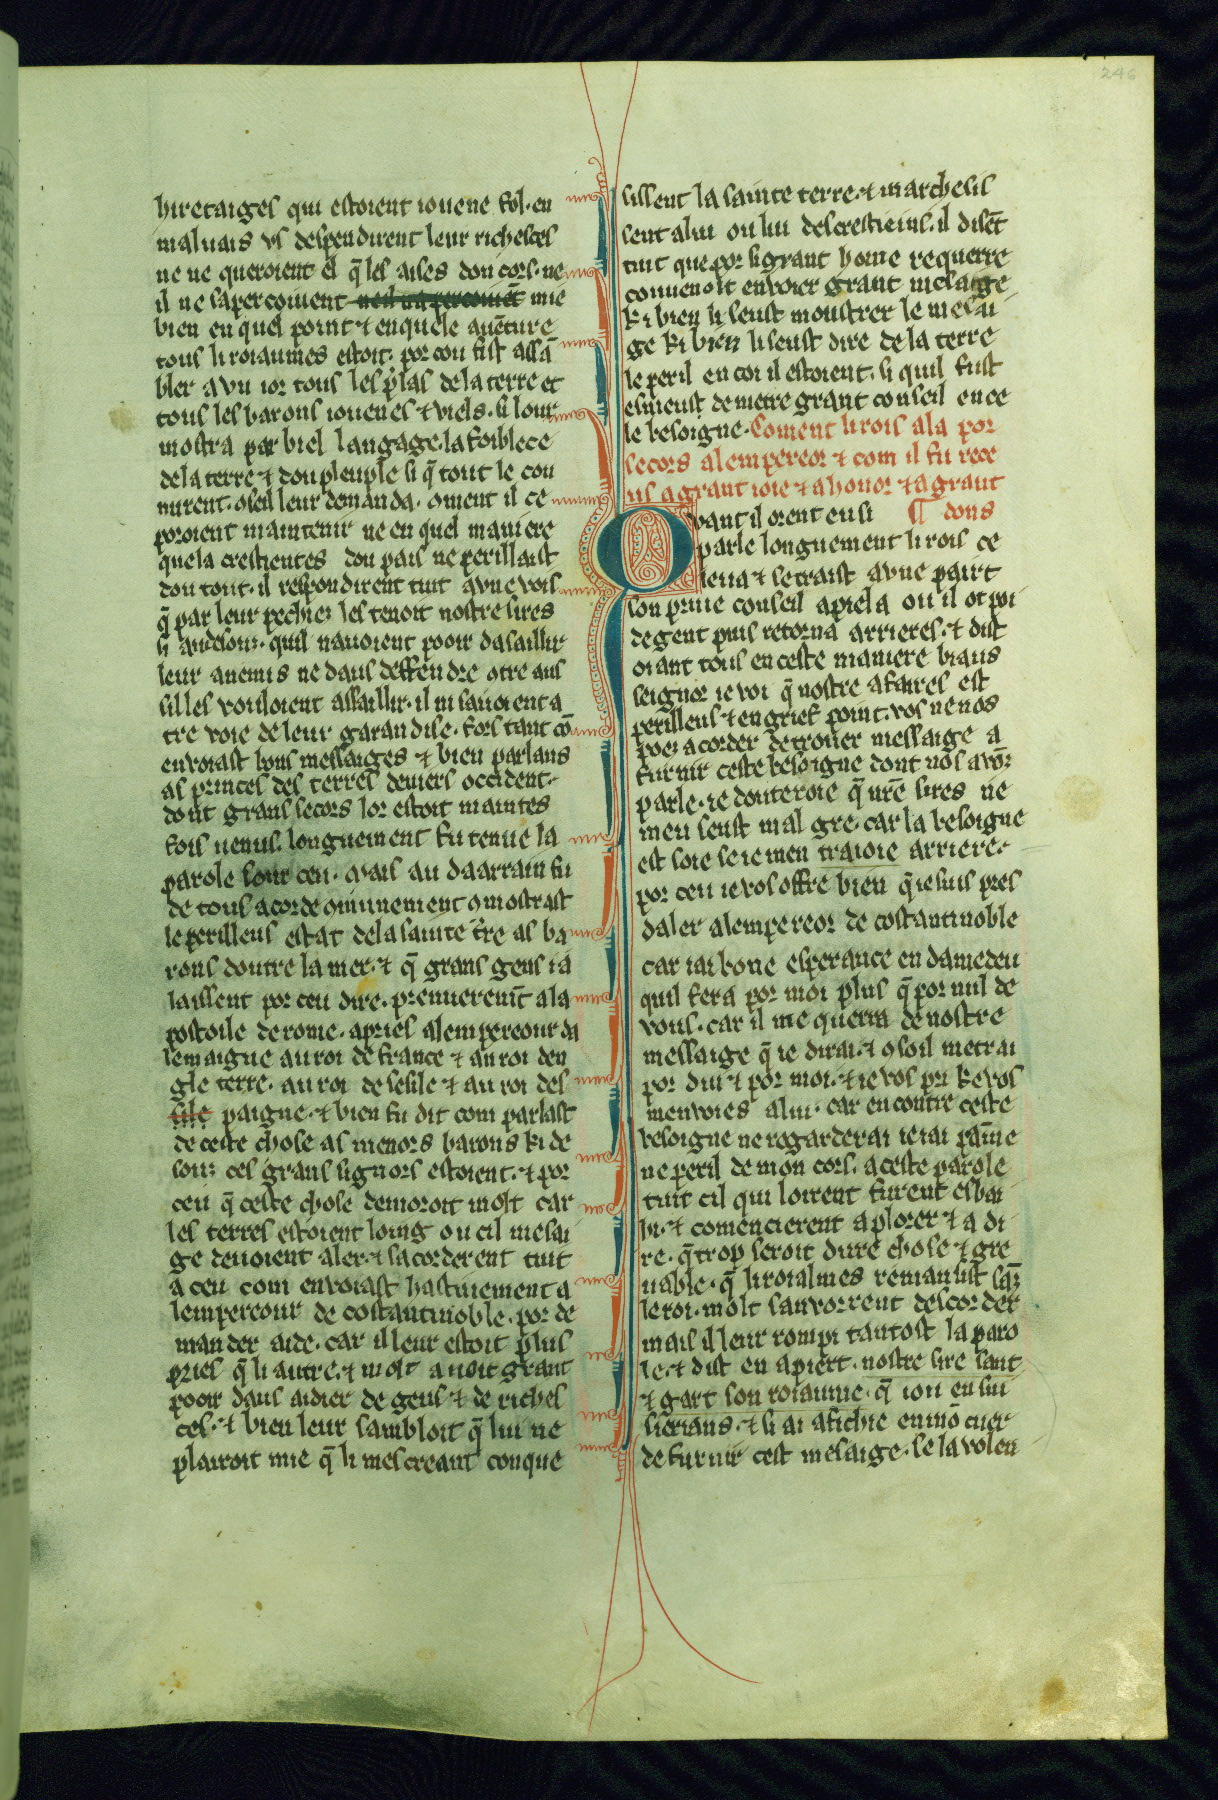 246
hiretaiges qui estoient iouene fol. en
maluais vs despendirent leur richesces
ne ne queroient el q̄ les aises dou cors. ne
il ne sapercoiuent ne il napercoiuēt mie
bien en quel point ⁊ en quele auēture
tous li roiaumes estoit. por cou fist assā
bler a vn ior tous les p̄las de la terre et
tous les barons iouenes ⁊ viels. si lour
mostra par biel langage. la foiblece
de la terre ⁊ dou pleuple si q̄ tout le con
nurent. 9seil leur demanda. 9ment il ce
poroient maintenir ne en quel maniere
que la crestientes dou pais ne perillaist
dou tout. il respondirent tuit a vne vois
q̄ par leur pechiez les tenoit nostre sires
si au desouz. quil nauoient pooir dasaillir
leur anemis ne daus deffendre 9tre aus
silles vouloient assaillir. il ni sauoient a
tre voie de leur garandise. fors tant cō
enuoiast bons messaiges ⁊ bien parlans
as princes des terres deuiers occident.
dont grans secors lor estoit maintes
fois uenus. longuement fu tenue la
parole sour ceu. mais au daarrain fu
de tous acorde 9munement 9 mostrast
le perilleus estat de la sainte t̄re as ba
rons doutre la mer. ⁊ q̄ grans gens i a
laissent por ceu dire. premierem̄t a la
postoile de rome. apries a lempereour da
lemaigne au roi de france ⁊ au roi den
gle terre. au roi de sesile ⁊ au roi des
sile paigne. ⁊ bien fu dit com parlast
de ceste chose as menors barons ki de
souz ces grans signors estoient. ⁊ por
ceu q̄ ceste chose demoroit molt car
les terres estoient loing ou cil mesai
ge deuoient aler. ⁊ sacorderent tuit
a ceu com enuoiast hastiuement a
lempereour de costantinoble. por de
mander aide. car il leur estoit plus
pries q̄ li autre. ⁊ molt auoit grant
pooir daus aidier de gens ⁊ de riches
ces. ⁊ bien leur sambloit q̄ lui ne
plairoit mie q̄ li mescreant conque
sissent la sainte terre. ⁊ marchesis
sent a lui ou lui descrestieins. il disēt
tuit que por si grant home requerre
conuenoit enuoier grant mesaige
ki bien li seust moustrer le mesai
ge ki bien li seust dire de la terre
le peril en coi il estoient. si quil fust
esmeust de metre grant conseil en ce
le besoigne. Coment li rois ala por
secors a lempereor ⁊ com il fu rece
us a grant ioie ⁊ a honor ⁊ a grant
Qvant il orent ensi ¶ dons
parle longuement li rois ce
leua ⁊ se traist a vne pairt
son priue conseil apiela ou il ot poi
de gent puis retorna arrieres. ⁊ dist
oiant tous en ceste maniere biaus
seignor ie voi q̄ nostre afaires est
perilleus ⁊ en grief point. vos ne nos
poez acorder de trouer messaige a
furnir ceste besoigne dont nos avōz
parle. ie douteroie q̄ nr̄e sires ne
men seust mal gre. car la besoigne
est soie se ie men traioie arriere.
por ceu ie vos offre bien q̄ ie suis pres
daler a lempereor de costantinoble
car iai bone esperance en damedeu
quil fera por moi plus q̄ por nul de
vous. car il me querra de nostre
messaige q̄ ie dirai. ⁊ 9soil metrai
por dui ⁊ por moi. ⁊ ie vos pri ke vos
menvoies a lui. car en contre ceste
besoigne ne regarderai ie iai painne
ne peril de mon cors. a ceste parole
tuit cil qui loirent furent esbai
hi. ⁊ comencierent a plorer ⁊ a di
re. q̄ trop seroit dure chose ⁊ gre
uable. q̄ li roialmes remansist sāz
le roi. molt sauvorrent descorder
mais il leur rompi tantost la paro
le. ⁊ dist en apiert. nostre sire saut
⁊ gart son roiaume. q̄ iou en sui
sierians. ⁊ si ai afichie en mō cuer
de furnir cest mesaige. se la volen